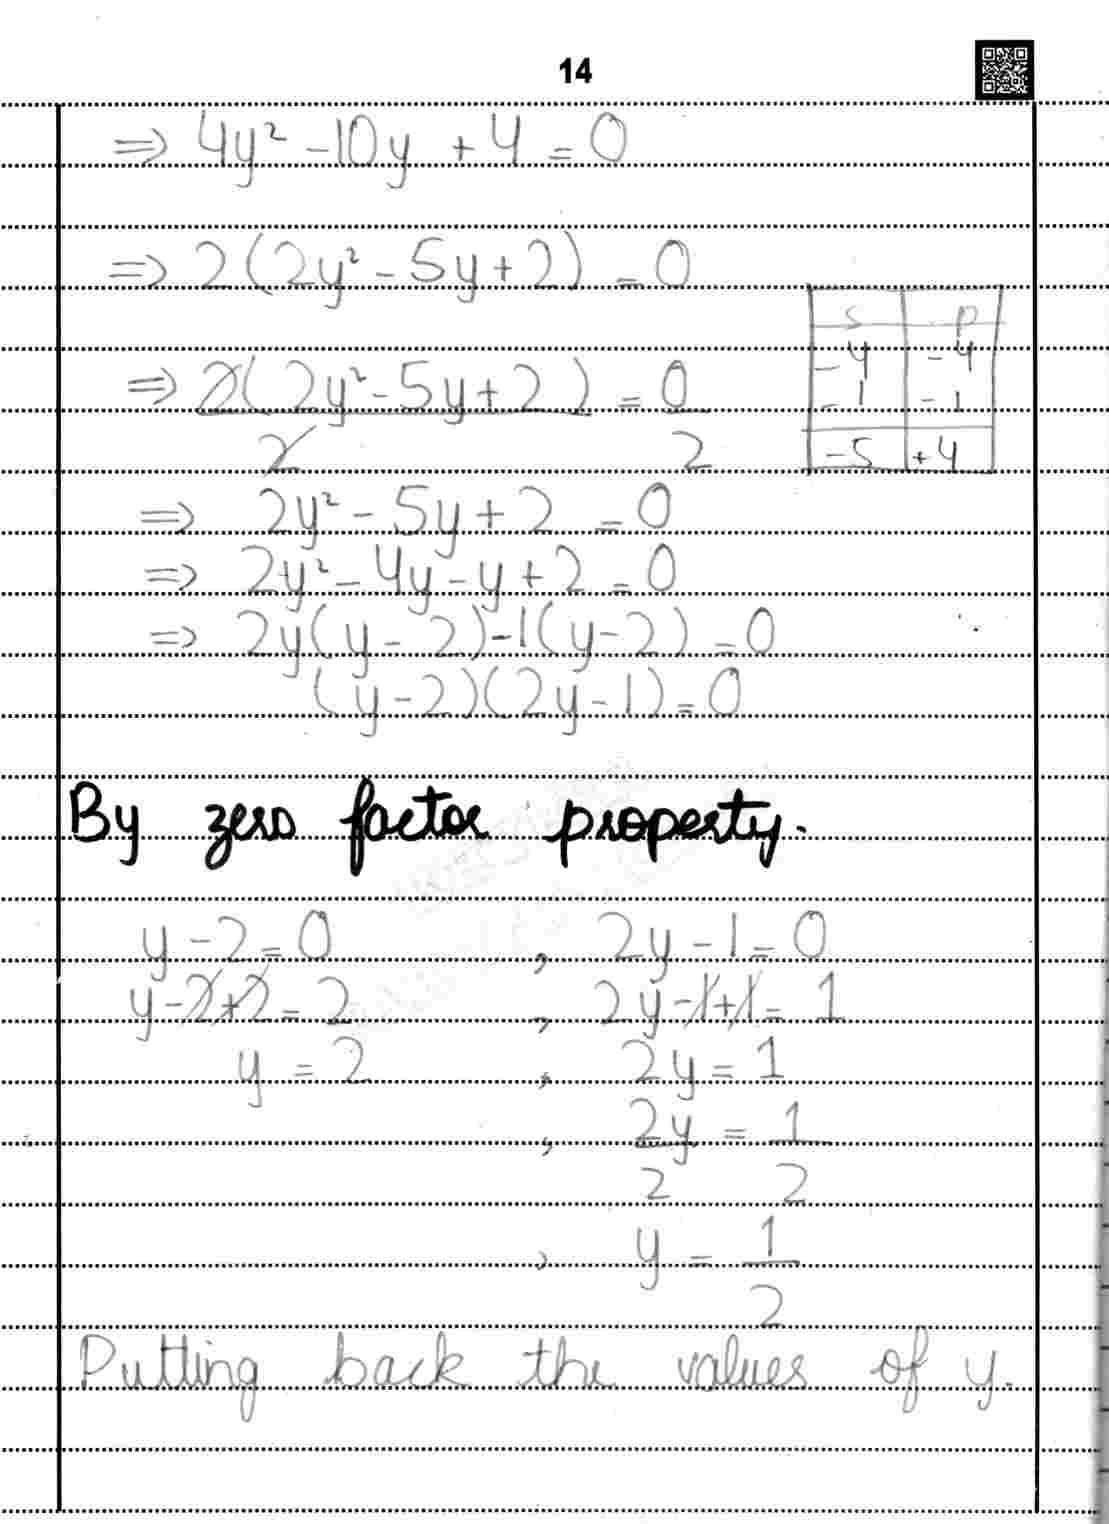 14
⇒ 4y² - 10y + 4 = 0
⇒ 2(2y² - 5y + 2) = 0
S P
-4 -4
-1 -1
-5 +4
⇒ 2(2y² - 5y + 2) = 0
2 2
⇒ 2y² - 5y + 2 = 0
⇒ 2y² - 4y - y + 2 = 0
⇒ 2y(y - 2) - 1(y - 2) = 0
(y - 2)(2y - 1) = 0
By zero factor property.
y - 2 = 0 , 2y - 1 = 0
y - 2 + 2 = 2 , 2y - 1 + 1 = 1
y = 2 , 2y = 1
, 2y = 1
2 2
, y = 1
2
Putting back the values of y.